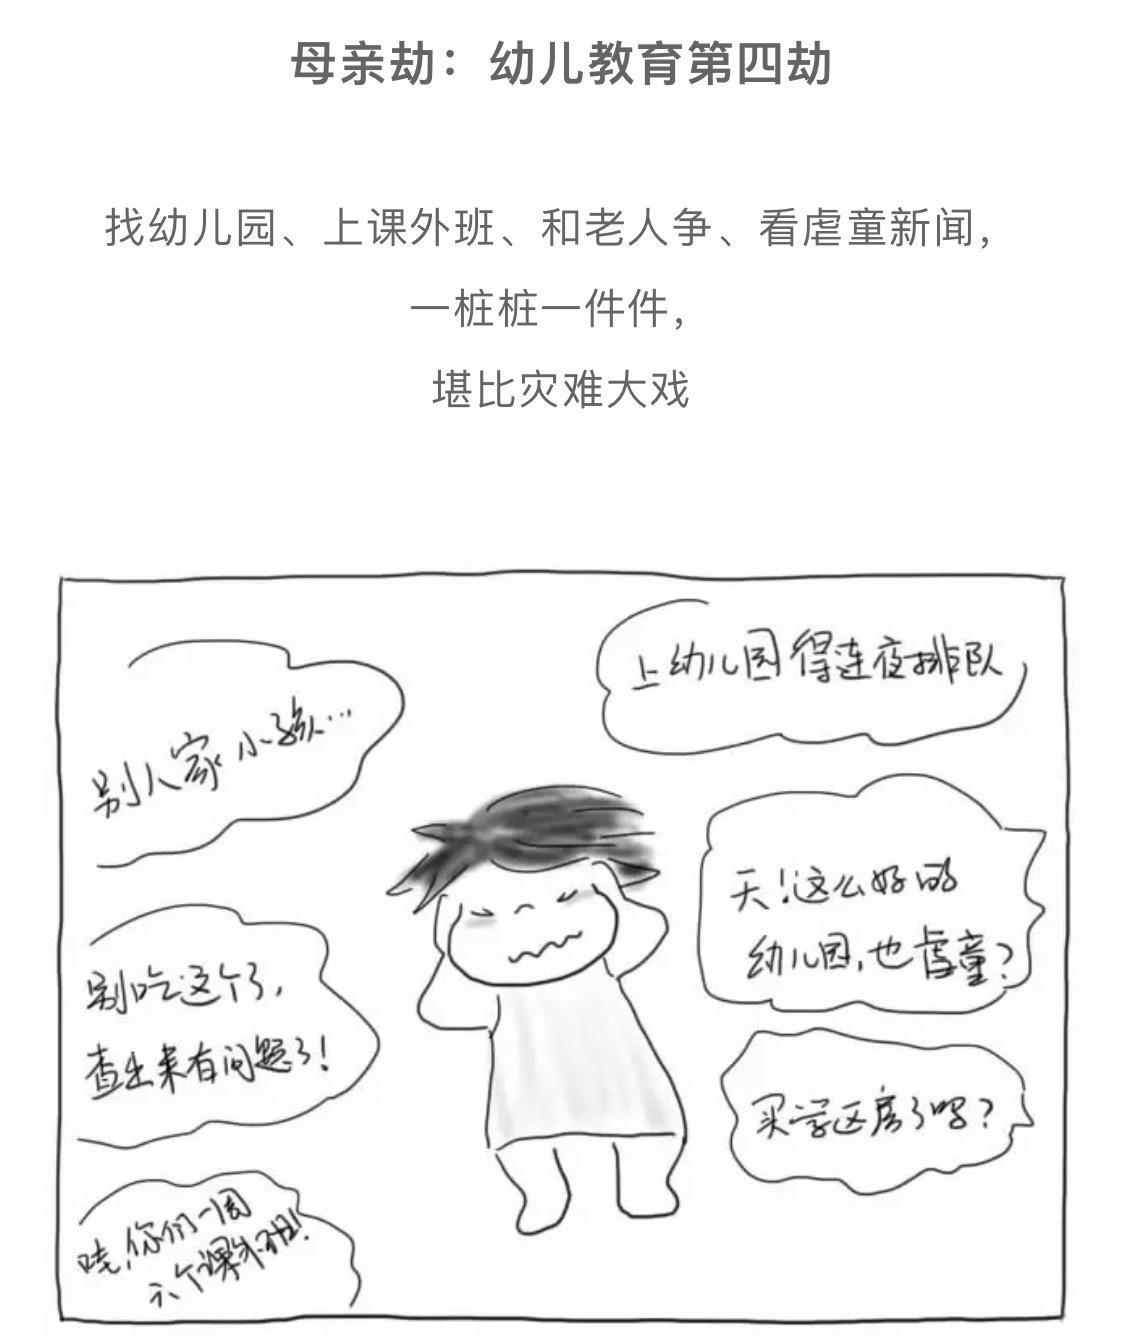 母亲劫：幼儿教育第四劫
找幼儿园、上课外班、和老人争、看虐童新闻，
一桩桩一件件，
堪比灾难大戏
别人家小孩…
上幼儿园得连夜排队
天！这么好的
幼儿园，也虐童？
别吃这个了，
查出来有问题了！
买学区房了吗？
哇，你们一周
六个课外班！